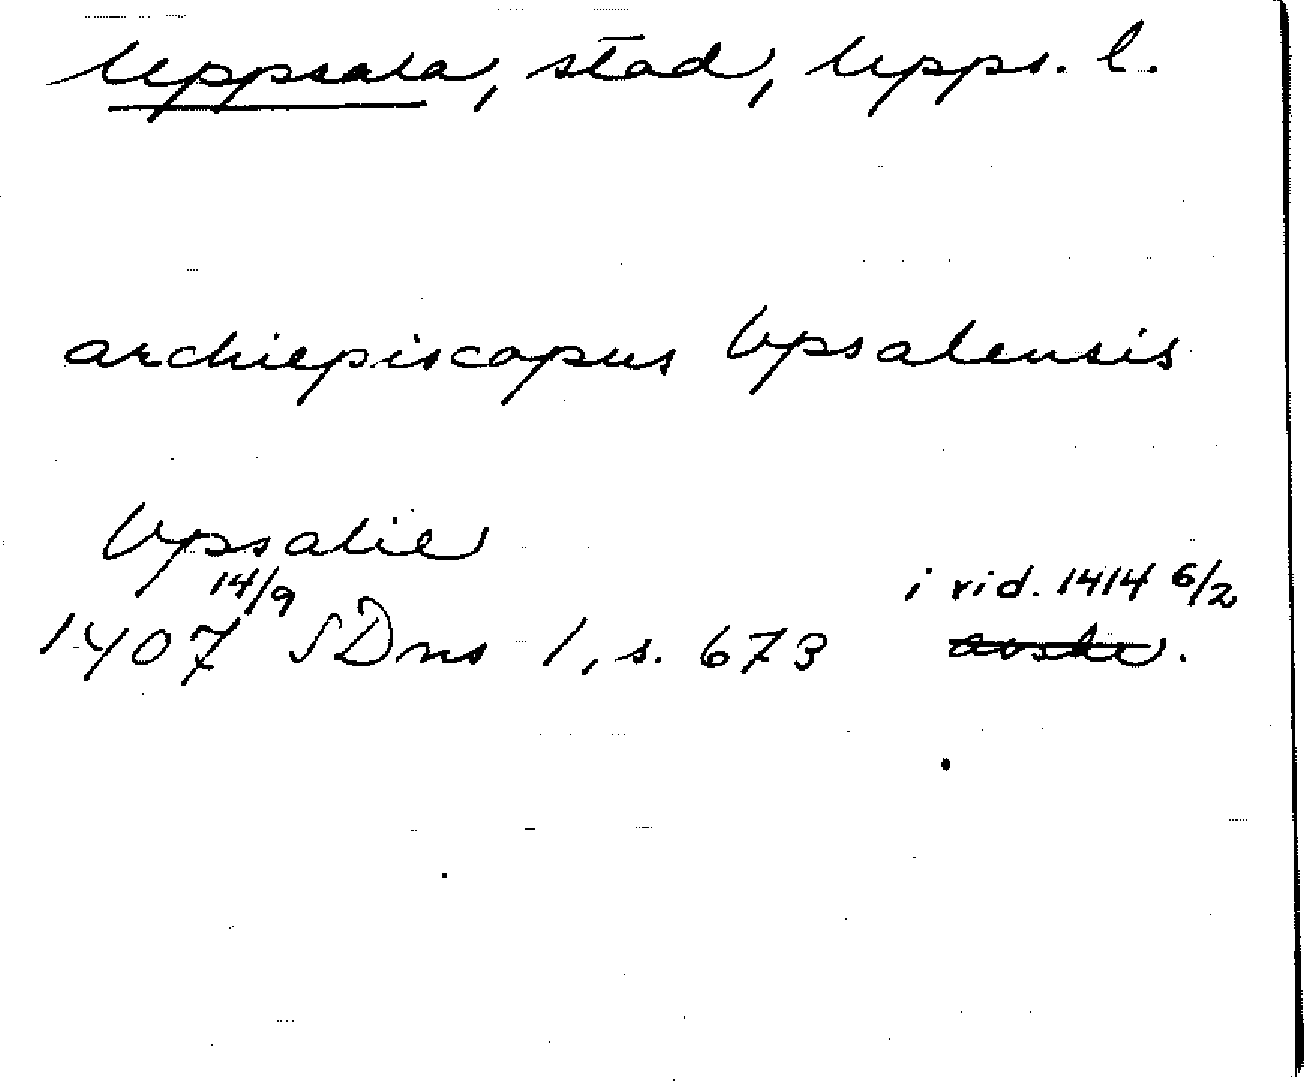 Uppsala, stad, Upps. l.
archiepiscopus Vpsalensis
Vpsalie
14/9 i vid. 1414 6/2
1407 SDns 1, s. 673 avskr.